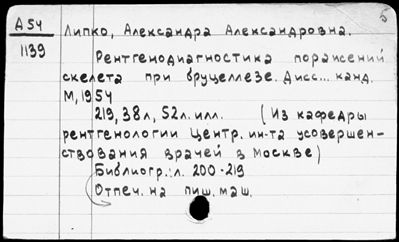 5
А54 Липко, Александра Александровна.
1139 Рентгенодиагностика поражений
скелета при бруцеллезе. Дисс... канд.
М, 1954
219, 38л, 52л. илл. (Из кафедры
рентгенологии Центр. ин-та усовершен-
ствования врачей в Москве)
Библиогр.: л. 200-219
Отпеч. на пиш. маш.